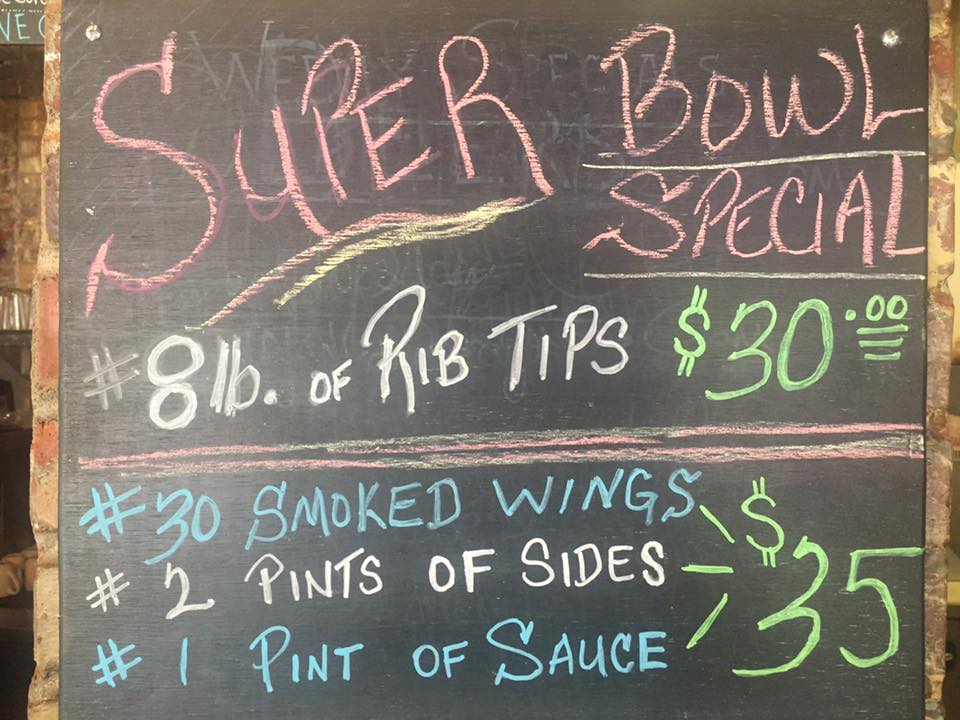 SUPER BOWL
SPECIAL
# 8 lb. OF RIB TIPS $30.00
# 30 SMOKED WINGS
# 2 PINTS OF SIDES $35
# 1 PINT OF SAUCE